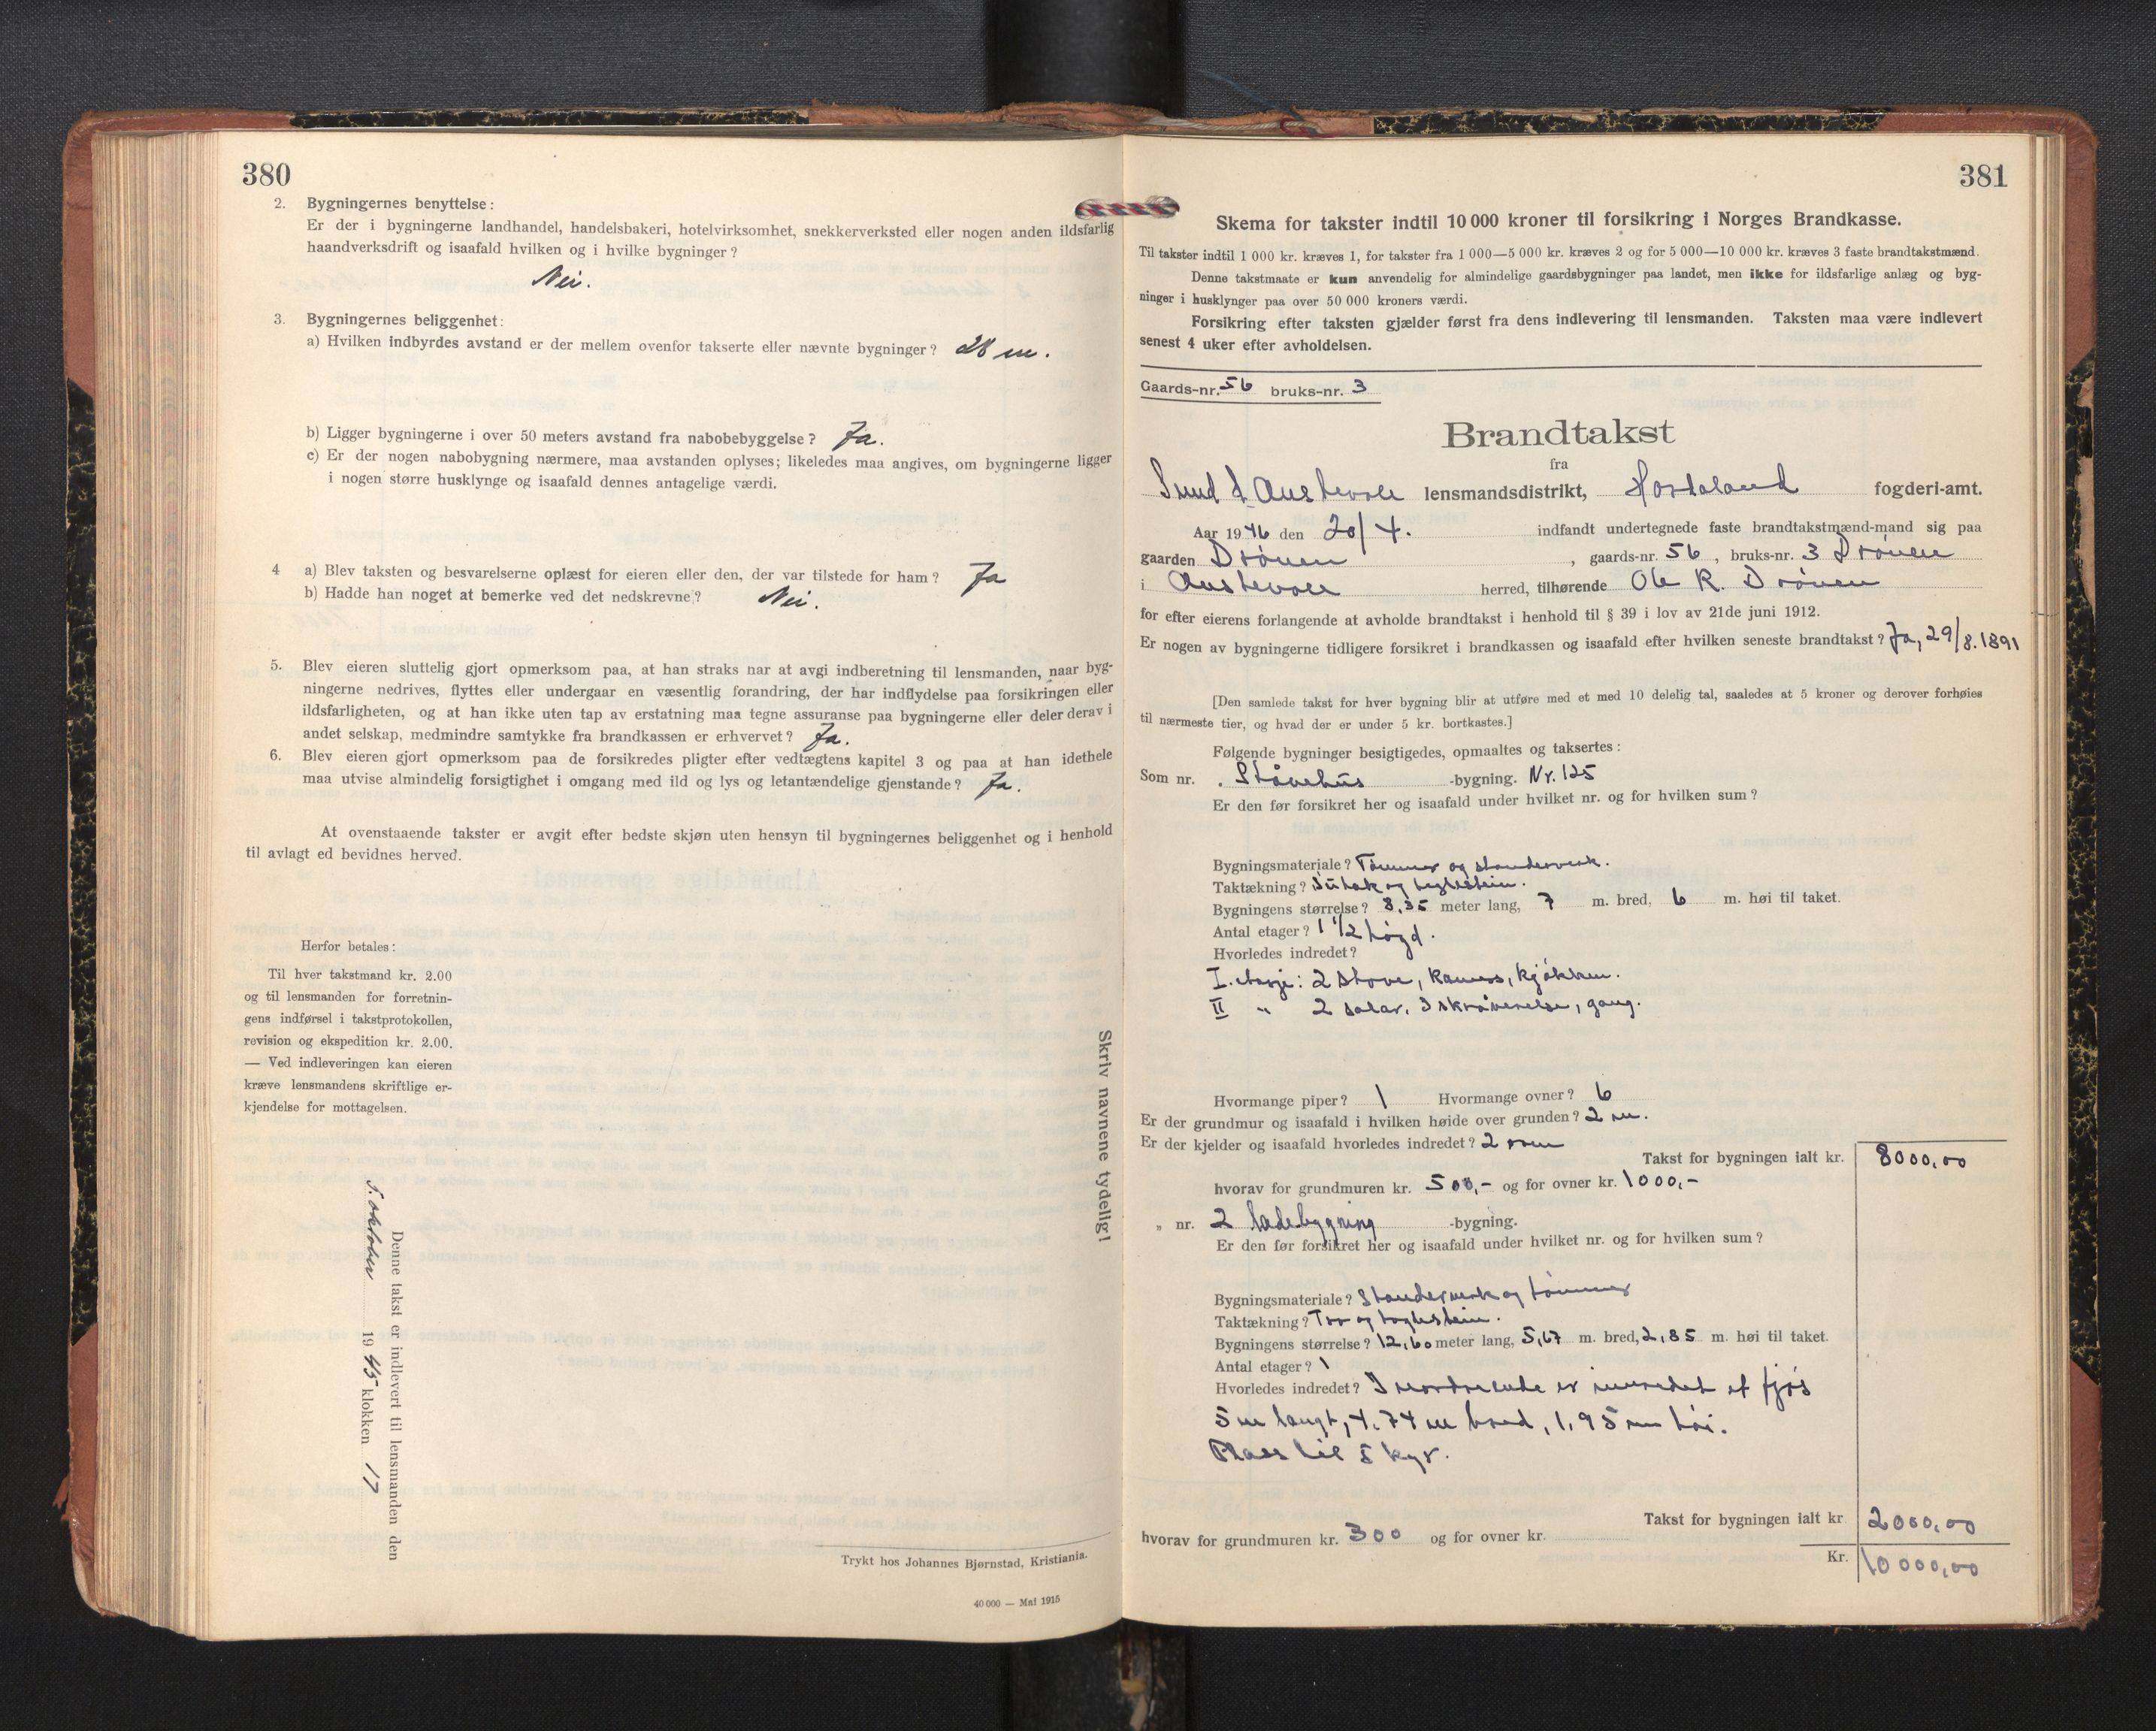 380
2. Bygningernes benyttelse:
Er der i bygningerne landhandel, handelsbakeri, hotelvirksomhet, snekkerverksted eller nogen anden ildsfarlig
haandverksdrift og isaafald hvilken og i hvilke bygninger?
Nei.
3. Bygningernes beliggenhet:
a) Hvilken indbyrdes avstand er der mellem ovenfor takserte eller nævnte bygninger? 28 m.
b) Ligger bygningerne i over 50 meters avstand fra nabobebyggelse? Ja.
c) Er der nogen nabobygning nærmere, maa avstanden oplyses; likeledes maa angives, om bygningerne ligger
i nogen større husklynge og isaafald dennes antagelige værdi.
4 a) Blev taksten og besvarelserne oplæst for eieren eller den, der var tilstede for ham? Ja
b) Hadde han noget at bemerke ved det nedskrevne? Nei.
5. Blev eieren sluttelig gjort opmerksom paa, at han straks har at avgi indberetning til lensmanden, naar byg-
ningerne nedrives, flyttes eller undergaar en væsentlig forandring, der har indflydelse paa forsikringen eller
ildsfarligheten, og at han ikke uten tap av erstatning maa tegne assuranse paa bygningerne eller deler derav i
andet selskap, medmindre samtykke fra brandkassen er erhvervet? Ja.
6. Blev eieren gjort opmerksom paa de forsikredes pligter efter vedtægtens kapitel 3 og paa at han idethele
maa utvise almindelig forsigtighet i omgang med ild og lys og letantændelige gjenstande? Ja.
At ovenstaaende takster er avgit efter bedste skjøn uten hensyn til bygningernes beliggenhet og i henhold
til avlagt ed bevidnes herved.
Herfor betales:
Til hver takstmand kr. 2.00
og til lensmanden for forretnin-
gens indførsel i takstprotokollen,
revision og ekspedition kr. 2.00.
— Ved indleveringen kan eieren
kræve lensmandens skriftlige er-
kjendelse for mottagelsen.
Skriv navnene tydelig!
Denne takst er indlevert til lensmanden den
5. oktober 1945 klokken 17
Trykt hos Johannes Bjørnstad, Kristiania.
40 000 — Mai 1915
381
Skema for takster indtil 10 000 kroner til forsikring i Norges Brandkasse.
Til takster indtil 1 000 kr. kræves 1, for takster fra 1 000—5 000 kr. kræves 2 og for 5 000—10 000 kr. kræves 3 faste brandtakstmænd.
Denne takstmaate er kun anvendelig for almindelige gaardsbygninger paa landet, men ikke for ildsfarlige anlæg og byg-
ninger i husklynger paa over 50 000 kroners værdi.
Forsikring efter taksten gjælder først fra dens indlevering til lensmanden. Taksten maa være indlevert
senest 4 uker efter avholdelsen.
Gaards-nr. 56 bruks-nr. 3
Brandtakst
fra
Sund & Austevoll lensmandsdistrikt, Hordaland fogderi-amt.
Aar 1946 den 20/4. indfandt undertegnede faste brandtakstmænd-mand sig paa
gaarden Drönen, gaards-nr. 56, bruks-nr. 3 Drönen
i Austevoll herred, tilhørende Ole R. Drönen
for efter eierens forlangende at avholde brandtakst i henhold til § 39 i lov av 21de juni 1912.
Er nogen av bygningerne tidligere forsikret i brandkassen og isaafald efter hvilken seneste brandtakst? Ja, 29/8. 1891
[Den samlede takst for hver bygning blir at utføre med et med 10 delelig tal, saaledes at 5 kroner og derover forhøies
til nærmeste tier, og hvad der er under 5 kr. bortkastes.]
Følgende bygninger besigtigedes, opmaaltes og taksertes:
Som nr. . Ståvehus -bygning. Nr. 125
Er den før forsikret her og isaafald under hvilket nr. og for hvilken sum?
Bygningsmateriale? Tömmer og standerverk.
Taktækning? Sutak og teglstein.
Bygningens størrelse? 8,35 meter lang, 7 m. bred, 6 m. høi til taket.
Antal etager? 1 1/2 høgd.
Hvorledes indredet?
I. etasje: 2 stove, kamers, kjökken.
II " 2 salar. 3 skråverelse, gang.
Hvormange piper? 1 Hvormange ovner? 6
Er der grundmur og isaafald i hvilken høide over grunden? 2 m.
Er der kjelder og isaafald hvorledes indredet? 2 rom
Takst for bygningen ialt kr. 8000,00
hvorav for grundmuren kr. 500,- og for ovner kr. 1000,-
" nr. 2 ladebygning -bygning.
Er den før forsikret her og isaafald under hvilket nr. og for hvilken sum?
Bygningsmateriale? Standerverk og tömmer
Taktækning? Tro og teglstein.
Bygningens størrelse? 12,60 meter lang, 5,67 m. bred, 2,85 m. høi til taket.
Antal etager? 1
Hvorledes indredet? I nordre ende er innredet et fjös
5 m langt, 4,74 m bred, 1,95 m höi.
Plass til 5 kyr.
Takst for bygningen ialt kr 2000,00
hvorav for grundmuren kr. 300 og for ovner kr.
Kr. 10000,00